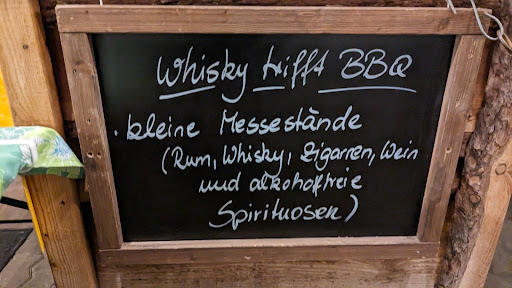 Whisky trifft BBQ
· kleine Messestände
(Rum, Whisky, Zigarren, Wein
und alkoholfreie
Spirituosen)